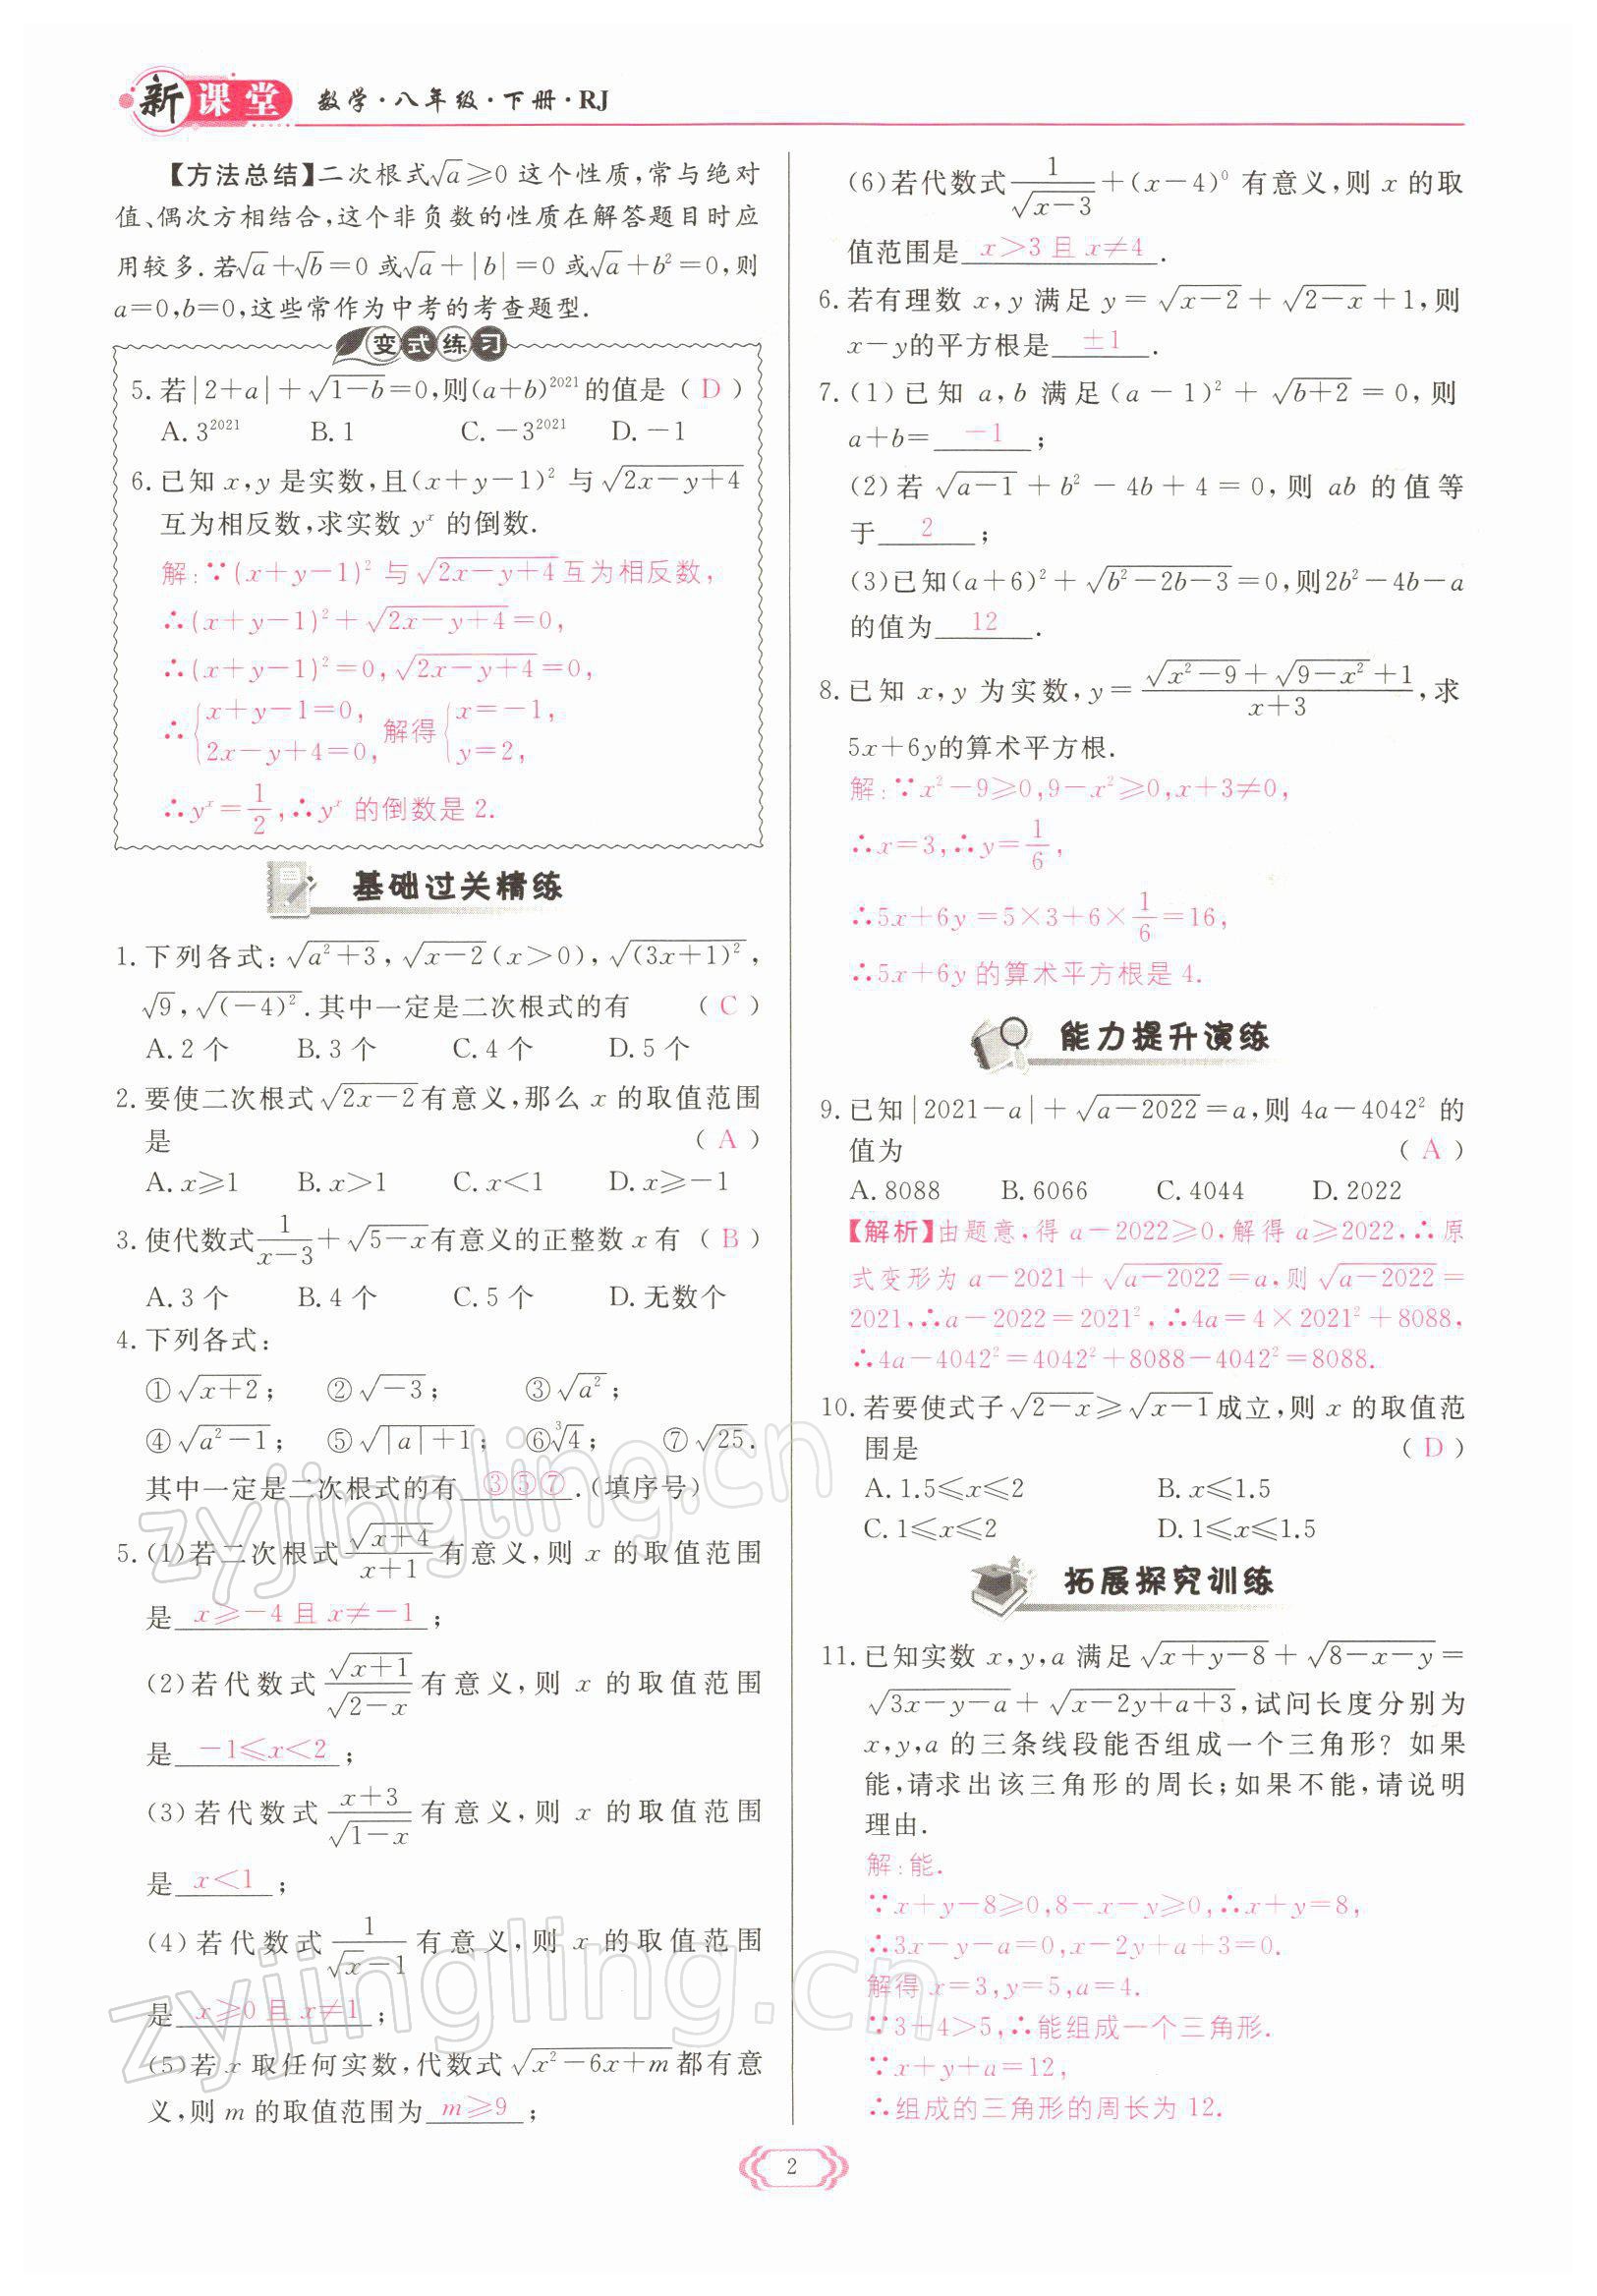 新课堂 数学·八年级·下册·RJ
【方法总结】二次根式√a≥0 这个性质,常与绝对
值、偶次方相结合,这个非负数的性质在解答题目时应
用较多.若√a+√b=0 或√a+|b|=0 或√a+b²=0,则
a=0,b=0,这些常作为中考的考查题型.
变式练习
5.若|2+a|+√(1-b)=0,则(a+b)²⁰²¹的值是( D )
A.3²⁰²¹ B.1 C.-3²⁰²¹ D.-1
6.已知 x,y 是实数,且(x+y-1)² 与√(2x-y+4)
互为相反数,求实数 yˣ 的倒数.
解:∵(x+y-1)² 与√(2x-y+4)互为相反数,
∴(x+y-1)²+√(2x-y+4)=0,
∴(x+y-1)²=0,√(2x-y+4)=0,
∴{x+y-1=0, 2x-y+4=0, 解得{x=-1, y=2,
∴yˣ=1/2,∴yˣ 的倒数是 2.
基础过关精练
1.下列各式:√(a²+3),√(x-2)(x>0),√((3x+1)²),
√9,√((-4)²).其中一定是二次根式的有 ( C )
A.2 个 B.3 个 C.4 个 D.5 个
2.要使二次根式√(2x-2)有意义,那么 x 的取值范围
是 ( A )
A.x≥1 B.x>1 C.x<1 D.x≥-1
3.使代数式1/(x-3)+√(5-x)有意义的正整数 x 有 ( B )
A.3 个 B.4 个 C.5 个 D.无数个
4.下列各式:
①√(x+2); ②√(-3); ③√(a²);
④√(a²-1); ⑤√(|a|+1); ⑥∛4; ⑦√25.
其中一定是二次根式的有 ③⑤⑦ .(填序号)
5.(1)若二次根式√(x+4)/(x+1)有意义,则 x 的取值范围
是 x≥-4 且 x≠-1 ;
(2)若代数式√(x+1)/√(2-x)有意义,则 x 的取值范围
是 -1≤x<2 ;
(3)若代数式(x+3)/√(1-x)有意义,则 x 的取值范围
是 x<1 ;
(4)若代数式1/(√x-1)有意义,则 x 的取值范围
是 x≥0 且 x≠1 ;
(5)若 x 取任何实数,代数式√(x²-6x+m)都有意
义,则 m 的取值范围为 m≥9 ;
(6)若代数式1/√(x-3)+(x-4)⁰ 有意义,则 x 的取
值范围是 x>3 且 x≠4 .
6.若有理数 x,y 满足 y=√(x-2)+√(2-x)+1,则
x-y的平方根是 ±1 .
7.(1)已知 a,b 满足(a-1)²+√(b+2)=0,则
a+b= -1 ;
(2)若√(a-1)+b²-4b+4=0,则 ab 的值等
于 2 ;
(3)已知(a+6)²+√(b²-2b-3)=0,则2b²-4b-a
的值为 12 .
8.已知 x,y 为实数,y=(√(x²-9)+√(9-x²)+1)/(x+3),求
5x+6y的算术平方根.
解:∵x²-9≥0,9-x²≥0,x+3≠0,
∴x=3,∴y=1/6,
∴5x+6y=5×3+6×1/6=16,
∴5x+6y 的算术平方根是 4.
能力提升演练
9.已知|2021-a|+√(a-2022)=a,则 4a-4042² 的
值为 ( A )
A.8088 B.6066 C.4044 D.2022
【解析】由题意,得 a-2022≥0,解得 a≥2022,∴原
式变形为 a-2021+√(a-2022)=a,则√(a-2022)=
2021,∴a-2022=2021²,∴4a=4×2021²+8088,
∴4a-4042²=4042²+8088-4042²=8088.
10.若要使式子√(2-x)≥√(x-1)成立,则 x 的取值范
围是 ( D )
A.1.5≤x≤2 B.x≤1.5
C.1≤x≤2 D.1≤x≤1.5
拓展探究训练
11.已知实数 x,y,a 满足√(x+y-8)+√(8-x-y)=
√(3x-y-a)+√(x-2y+a+3),试问长度分别为
x,y,a 的三条线段能否组成一个三角形?如果
能,请求出该三角形的周长;如果不能,请说明
理由.
解:能.
∵x+y-8≥0,8-x-y≥0,∴x+y=8,
∴3x-y-a=0,x-2y+a+3=0.
解得 x=3,y=5,a=4.
∵3+4>5,∴能组成一个三角形.
∵x+y+a=12,
∴组成的三角形的周长为 12.
zyjingling.cn
zyjingling.cn
2